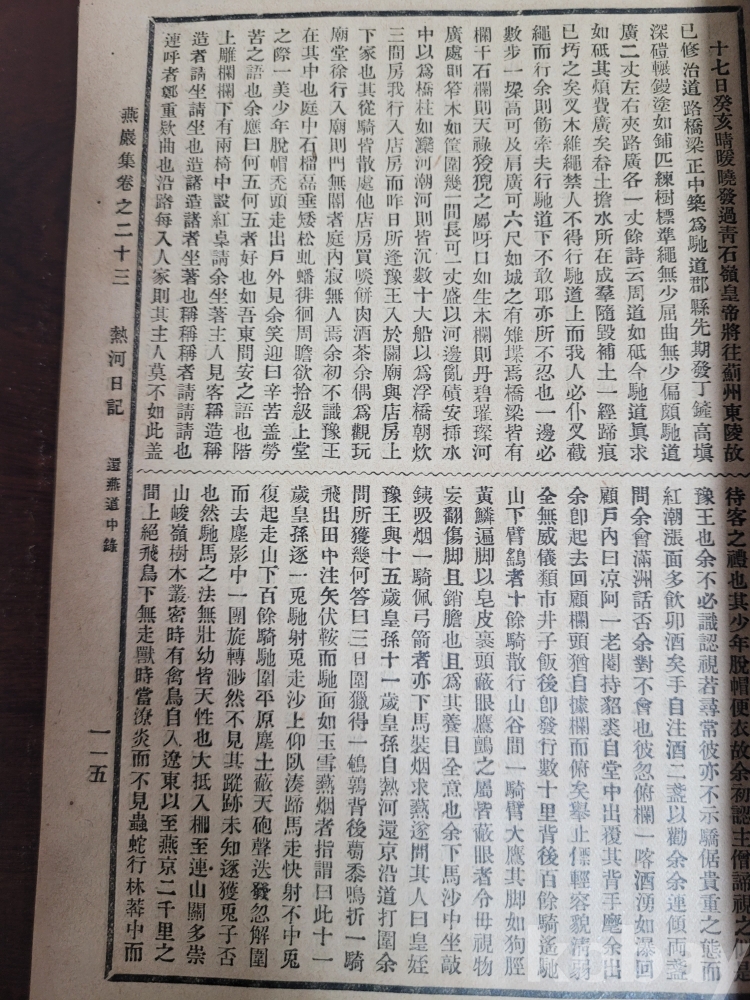 十七日癸亥晴暖曉發過靑石嶺皇帝將往薊州東陵故
已修治道路橋梁正中築爲馳道郡縣先期發丁鏟高塡
深碾輾鏝塗如鋪匹練樹標準繩無少屈曲無少偏頗馳道
廣二丈左右夾路廣各一丈餘詩云周道如砥今馳道眞求
如砥其煩費廣矣畚土擔水所在成羣隨毀補土一經蹄痕
已圬之矣叉木維繩禁人不得行馳道上而我人必仆叉截
繩而行余則飭牽夫行馳道下不敢耶亦所不忍也一邊必
數步一墚高可及肩廣可六尺如城之有雉堞焉橋梁皆有
欄干石欄則天祿狻猊之屬呀口如生木欄則丹碧璀璨河
廣處則笮木如筐圍幾一間長可一丈盛以河邊亂磧安揷水
中以爲橋柱如灤河潮河則皆沉數十大船以爲浮橋朝炊
三間房我行入店房而昨日所逢豫王入於關廟與店房上
下家也其從騎皆散處他店房買啖餠肉酒茶余偶爲觀玩
廟堂徐行入廟則門無閽者庭內寂無人焉余初不識豫王
在其中也庭中石榴磊垂矮松虬蟠徘徊周瞻欲拾級上堂
之際一美少年脫帽禿頭走出戶外見余笑迎曰辛苦盖勞
苦之語也余應曰何五何五者好也如吾東問安之語也階
上雕欄欄下有兩椅中設紅桌請余坐著主人見客稱造稱
造者請坐請坐也造諸造諸者坐著也稱稱稱者請請請也
連呼者鄭重歎曲也沿路每入人家則其主人莫不如此盖
燕巖集卷之二十三 熱河日記 還燕道中錄 一一五
待客之禮也其少年脫帽便衣故余初認主僧諦視之
豫王也余不必識認視若尋常彼亦不示驕倨貴重之態而
紅潮漲面多飮卯酒矣手自注酒二盞以勸余余連傾兩盞
問余會滿洲話否余對不會也彼忽俯欄一喀酒湧如瀑回
顧戶內曰凉阿一老閹持貂裘自堂中出覆其背手麾余出
余卽起去回顧欄頭猶自據欄而俯矣擧止儇輕容貌淸弱
全無威儀類市井子飯後卽發行數十里背後百餘騎遙馳
山下臂鷂者十餘騎散行山谷間一騎臂大鷹其脚如狗脛
黃鱗遍脚以皂皮裹頭蔽眼鷹鷂之屬皆蔽眼者令毋視物
妄翻傷脚且銷膽也且爲其養目全意也余下馬沙中坐敲
銕吸烟一騎佩弓箭者亦下馬裝烟求爇遂問其人曰皇姪
豫王與十五歲皇孫十一歲皇孫自熱河還京沿道打圍余
問所獲幾何答曰三日圍獵得一鵪鶉背後蜀黍鳴折一騎
飛出田中注矢伏鞍而馳面如玉雪爇烟者指謂曰此十一
歲皇孫逐一兎馳射兎走沙上仰臥湊蹄馬走快射不中兎
復起走山下百餘騎馳圍平原塵土蔽天砲聲迭發忽解圍
而去塵影中一團旋轉渺然不見其蹤跡未知遂獲兎子否
也然馳馬之法無壯幼皆天性也大抵入柵至連山關多崇
山峻嶺樹木叢密時有禽鳥自入遼東以至燕京二千里之
間上絕飛鳥下無走獸時當潦炎而不見蟲蛇行林莽中而